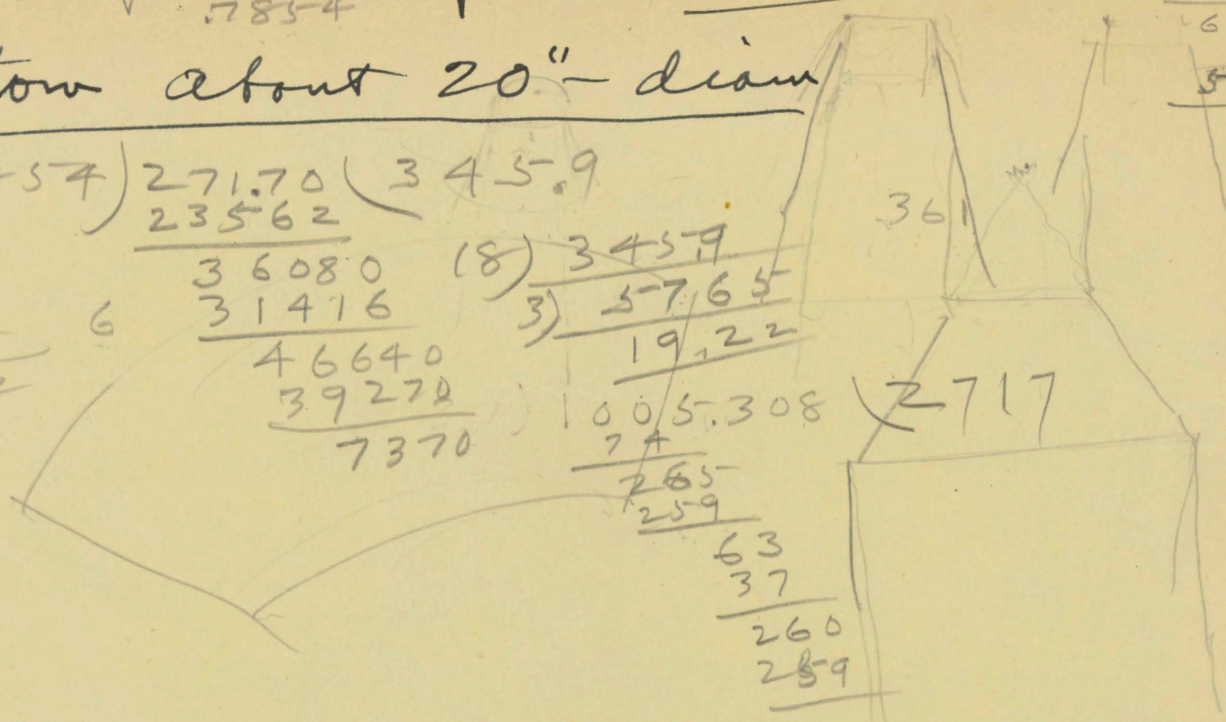 .7854
6
5
about 20" - diam
54) 271.70 ( 345.9
23562
36080
6 31416
46640
39270
7370
(8) 345.9
3) 57.65
19.22
361
1005.308 ( 2717
74
265
259
63
37
260
259